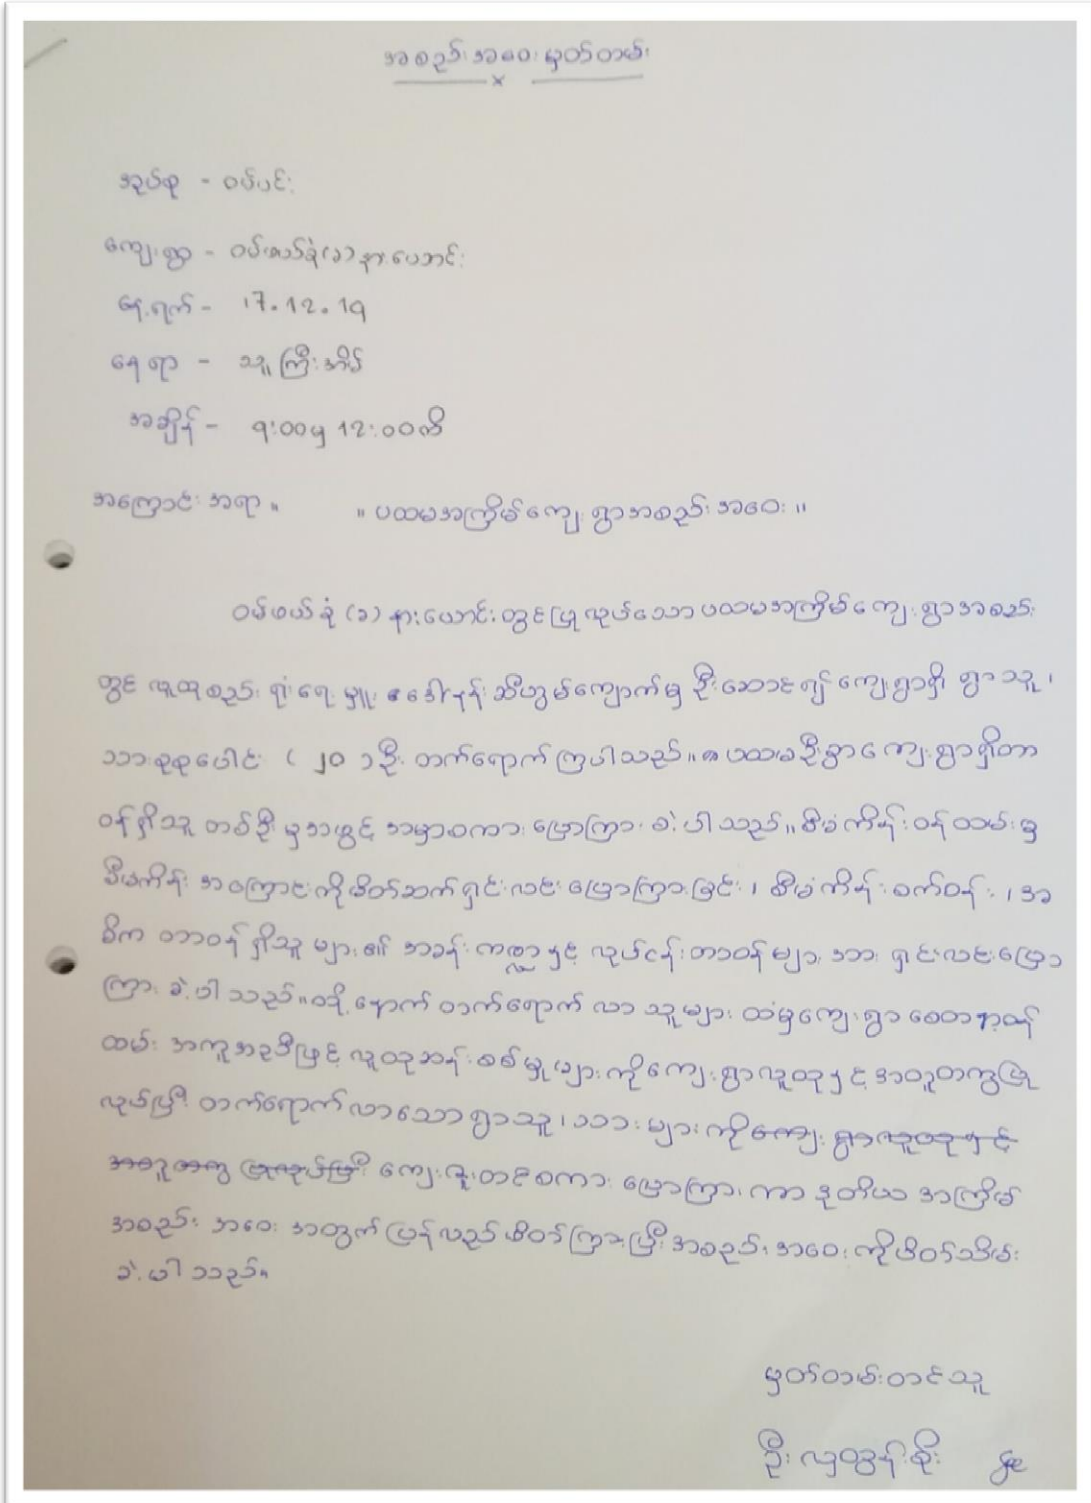 အစည်းအဝေးမှတ်တမ်း
အုပ်စု - ဝမ်ပင်း
ကျေးရွာ - ဝမ်ဖယ်ခုံ(ခ)နားယောင်း
နေ့ရက် - 17.12.19
နေရာ - သူကြီးအိမ်
အချိန် - 9:00မှ 12:00ထိ
အကြောင်းအရာ။ ။ ပထမအကြိမ်ကျေးရွာအစည်းအဝေး ။
ဝမ်ဖယ်ခုံ (ခ) နားယောင်းတွင်ပြုလုပ်သောပထမအကြိမ်ကျေးရွာအစည်း
တွင် လူထုစည်းရုံးရေးမှူး ဒေါ်နန်းဆီဟွမ်ကျောက်မှ ဦးဆောင်၍ ကျေးရွာရှိ ရွာသူ၊
သားစုစုပေါင်း ( ၂၀ ) ဦး တက်ရောက်ကြပါသည်။ ပထမဦးစွာကျေးရွာရှိတာ
ဝန်ရှိသူ တစ်ဦးမှအဖွင့် အမှာစကားပြောကြားခဲ့ပါသည်။ စီမံကိန်းဝန်ထမ်းမှ
စီမံကိန်း အကြောင်းကိုမိတ်ဆက်ရှင်းလင်းပြောကြားခြင်း၊ စီမံကိန်းစက်ဝန်း၊ အ
ဓိက တာဝန်ရှိသူများ၏ အခန်းကဏ္ဍနှင့် လုပ်ငန်းတာဝန်များအား ရှင်းလင်းပြော
ကြားခဲ့ပါသည်။ ထို့နောက် တက်ရောက်လာသူများထံမှကျေးရွာစေတနာ့ဝန်
ထမ်း အကူအညီဖြင့် လူထုဆန်းစစ်မှုများကိုကျေးရွာလူထုနှင့်အတူတကွပြု
လုပ်ပြီး တက်ရောက်လာသောရွာသူ၊သားများကိုကျေးရွာလူထုနှင့်
အတူတကွ ပြုလုပ်ပြီး ကျေးဇူးတင်စကားပြောကြားကာ ဒုတိယအကြိမ်
အစည်းအဝေးအတွက်ပြန်လည်ဖိတ်ကြားပြီးအစည်းအဝေးကိုပိတ်သိမ်း
ခဲ့ပါသည်။
မှတ်တမ်းတင်သူ
ဦးလှထွန်းစိုး